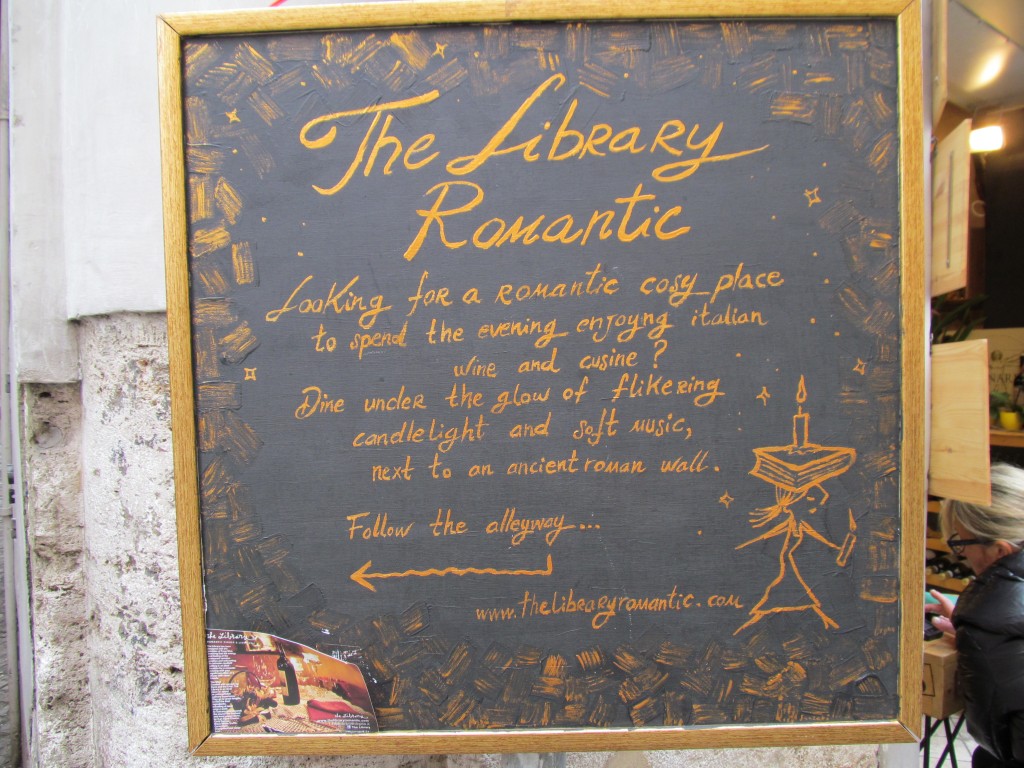 The Library
Romantic
Looking for a romantic cosy place
to spend the evening enjoyng italian
wine and cusine ?
Dine under the glow of flikering
candlelight and soft music,
next to an ancient roman wall.
Follow the alleyway...
www.thelibraryromantic.com
the Library